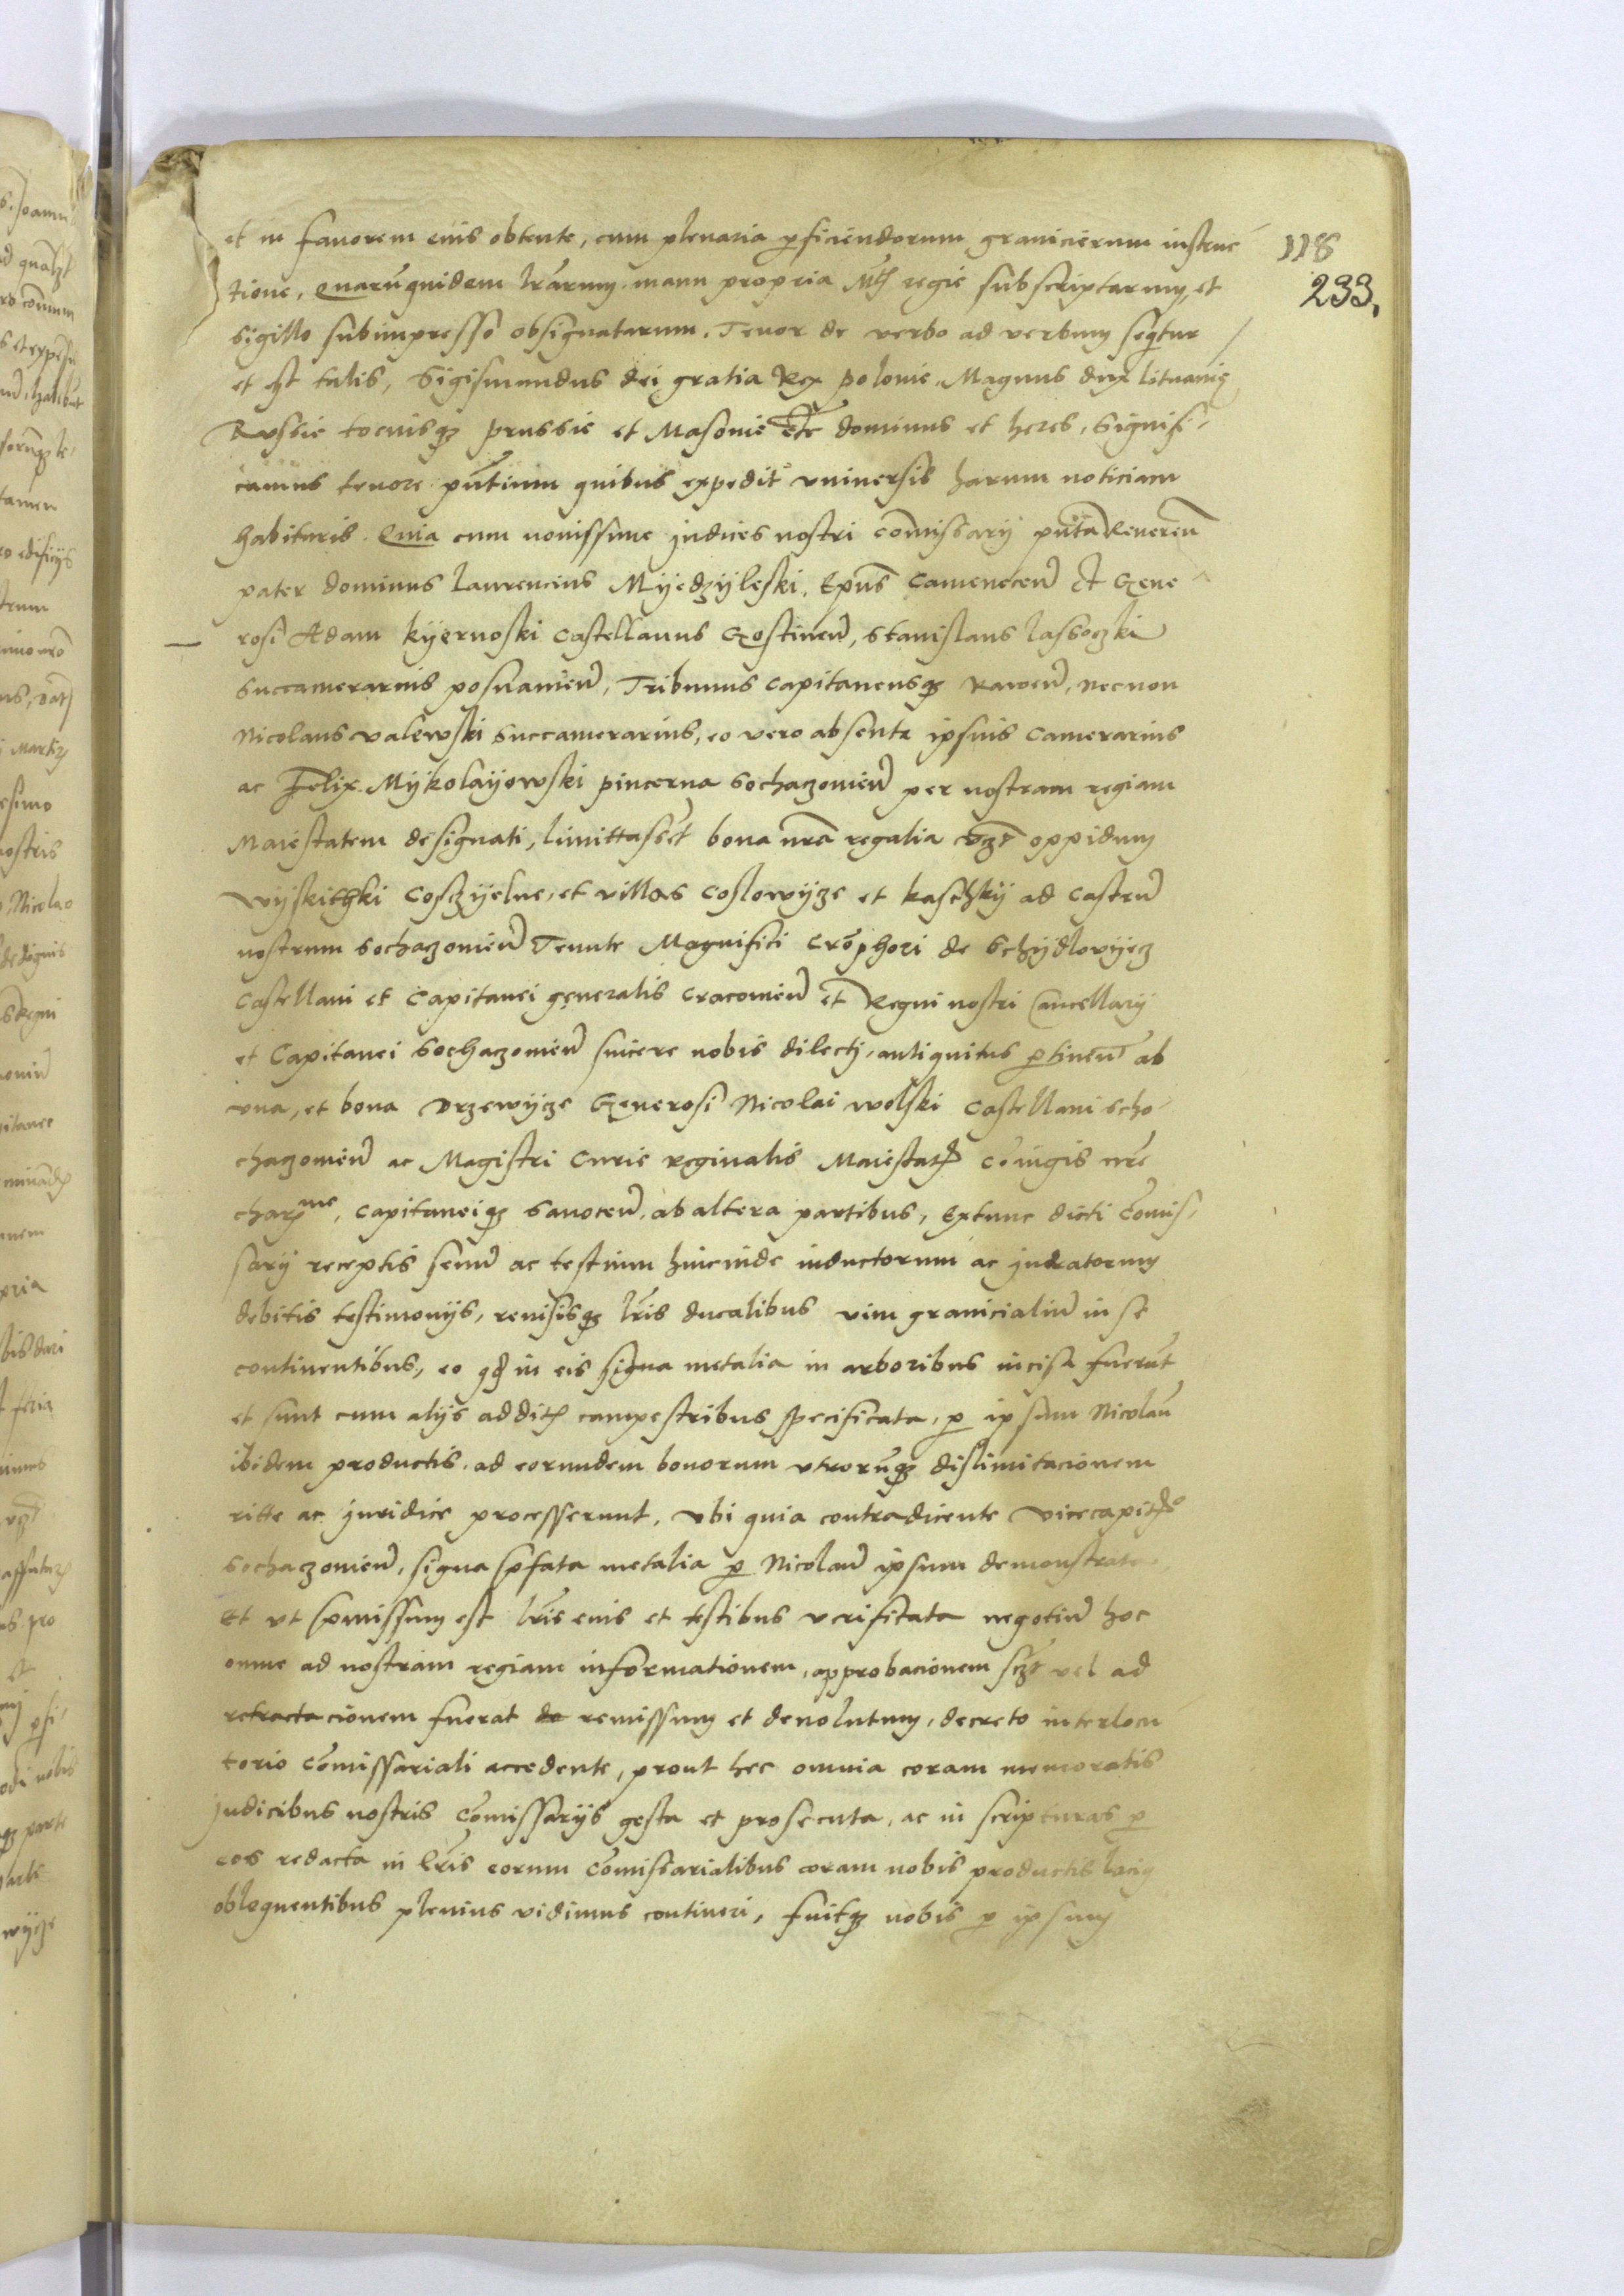 118
233.
et in fauorem eius obtente, cum plenaria ꝑficiendorum granicierum instruc
tione, Quarūquidem lrārum manu propria Mtis regie subscriptarum, et
sigillo subimpresso obsignatarum. Tenor de verbo ad verbum seqtur
et est talis, Sigismundus dei gratia Rex polonie, Magnus dux Lituanię
Russie tociusqȝ prussie et Masouie etc̄ dominus et heres, Signifi-
camus tenore pn̄tium quibus expedit vniuersis harum noticiam
habituris. Quia cum nouissime judices nostri com̄issarij pūta Reueren̄
pater dominus Laurencius Myedzyleski, Epūs Camenecen̄ Et Gene
rosi Adam kyernoski Castellanus Gostinen̄, Stanislaus lassoczki
succamerarius posnanien̄, Tribunus Capitaneusqȝ Rawen̄, necnon
Nicolaus valewski succamerarius, eo vero absente ipsius Camerarius
ac Felix Mykolayowski pincerna Sochaczouien̄ per nostram regiam
Maiestatem designati, limittassent bona nrā regalia vȝt oppidum
wyskithki Cosczyelne, et villas Coslowycze et kaschky ad Castrū
nostrum Sochaczouien̄ Tenute Magnifici Crōphori de Schydlowyecz
Castellani et Capitanei generalis Cracouien̄ et Regni nostri Cancellarij
et Capitanei Sochaczouien̄ sincere nobis dilecti, antiquitus ꝑtinen̄ ab
vna, et bona Drzewycze Generosi Nicolai wolski Castellani scho-
chaczouien̄ ac Magistri Curie reginalis Maiestatis Cōiugis nrē
charme, Capitaneiqȝ Sanocen̄, ab altera partibus, Extunc dicti Com̄is-
sarij receptis senū ac testium hincinde inductorum ac juratorum
debitis testimonijs, reuisisqȝ lrīs ducalibus vim granicialiū in se
continentibus, eo qđ in eis signa metalia in arboribus incisa fuerūt
et sunt cum alijs additis campestribus specificata, ꝑ ipsum Nicolaū
ibidem productis, ad eorundem bonorum vtrorūqȝ dislimitacionem
ritte ac juridice processerunt, vbi quia contradicente vicecapito
Sochaczouien̄, signa pfata metalia ꝑ Nicolaū ipsum demonstrata
Et vt pmissum est lrīs eius et testibus verificata negotiū hoc
omne ad nostram regiam informationem, approbacionem sȝt vel ad
retractacionem fuerat de remissum et deuolutum, decreto interlocu
torio Com̄issariali accedente, prout hec omnia coram memoratis
judicibus nostris Com̄issarijs gesta et prosecuta, ac in scripturas ꝑ
eos redacta in lrīs eorum Com̄issarialibus coram nobis productis lacių
obloquentibus plenius vidimus contineri, fuitqȝ nobis ꝑ ipsum